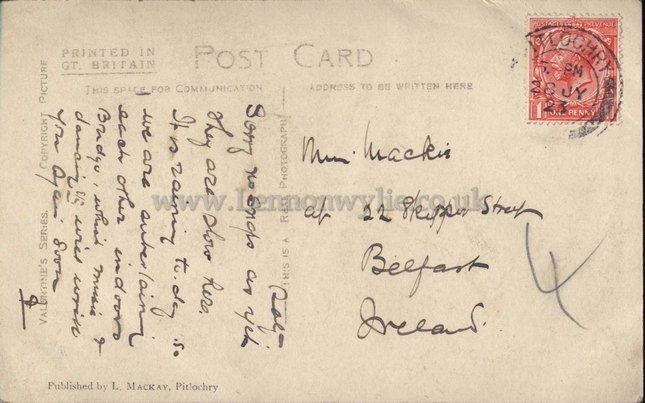 PRINTED IN
GT. BRITAIN
POST CARD
THIS SPACE FOR COMMUNICATION
ADDRESS TO BE WRITTEN HERE
VALENTINE'S SERIES. COPYRIGHT PICTURE
THIS IS A REAL PHOTOGRAPH
PITLOCHRY
PM
JY
23
1
ONE PENNY
Sorry no snaps as yet
they are slow here.
It is raining to-day so
we are entertaining
each other indoors
Bridge, whist music &
dancing &c will write
you again soon
Mackie
at 22 Skipper Street
Belfast
Ireland.
4
www.lennonwylie.co.uk
Published by L. MACKAY, Pitlochry